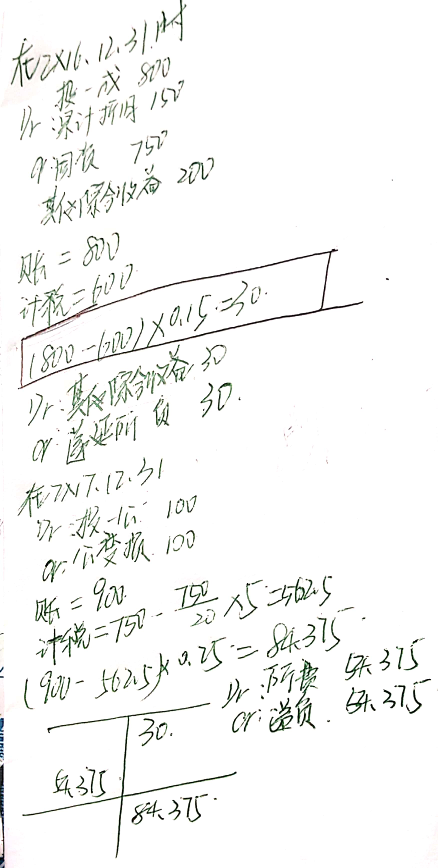 在2X16.12.31.时
投-成 800
Dr 累计折旧 150
Cr 固资 750
其他综合收益 200
账 = 800
计税 = 600
(800-600)×0.15=30.
Dr: 其他综合收益 30
Cr: 递延所 负 30.
在2X17.12.31
Dr: 投-公 100
Cr: 公变损 100
账 = 900.
计税 = 750 - 750/20 ×5=562.5
(900-562.5)×0.25 = 84.375.
Dr: 所费 54.375
Cr: 递负. 54.375
30.
54.375
84.375.